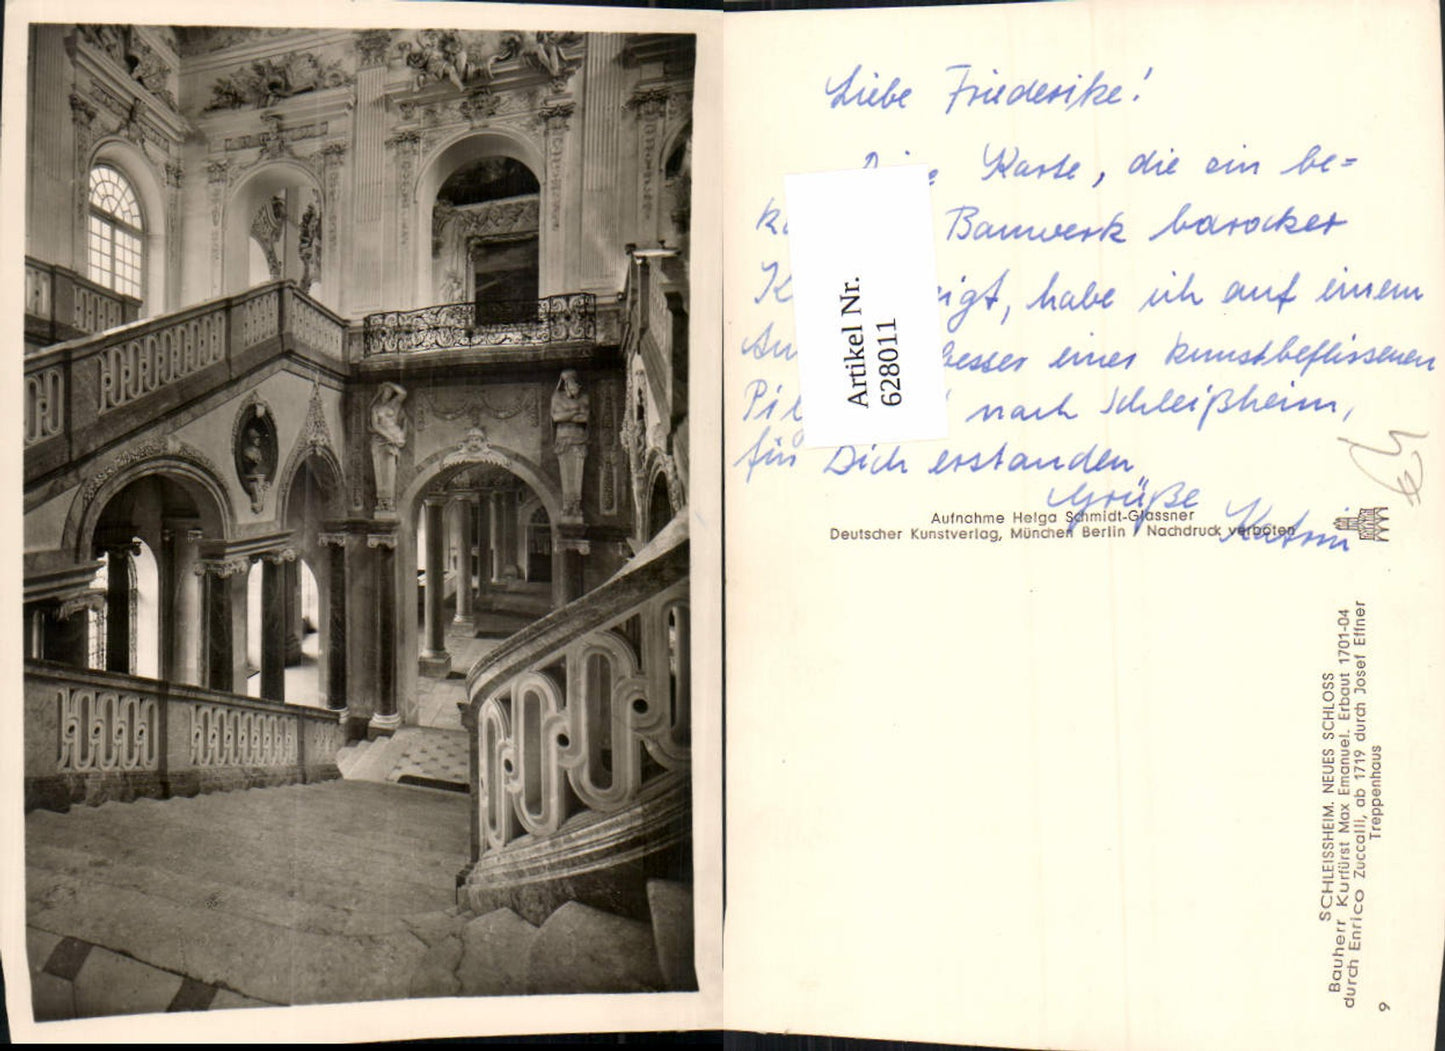 Liebe Friederike!
Karte, die ein be=
Bauwerk barocker
eigt, habe ich auf einem
besser einer kunstbeflissenen
nach Schleißheim,
für Dich erstanden
Grüße
Katrin
Artikel Nr.
628011
Aufnahme Helga Schmidt-Glassner
Deutscher Kunstverlag, München Berlin / Nachdruck verboten
SCHLEISSHEIM. NEUES SCHLOSS
Bauherr Kurfürst Max Emanuel. Erbaut 1701-04
durch Enrico Zuccalli, ab 1719 durch Josef Effner
Treppenhaus
9